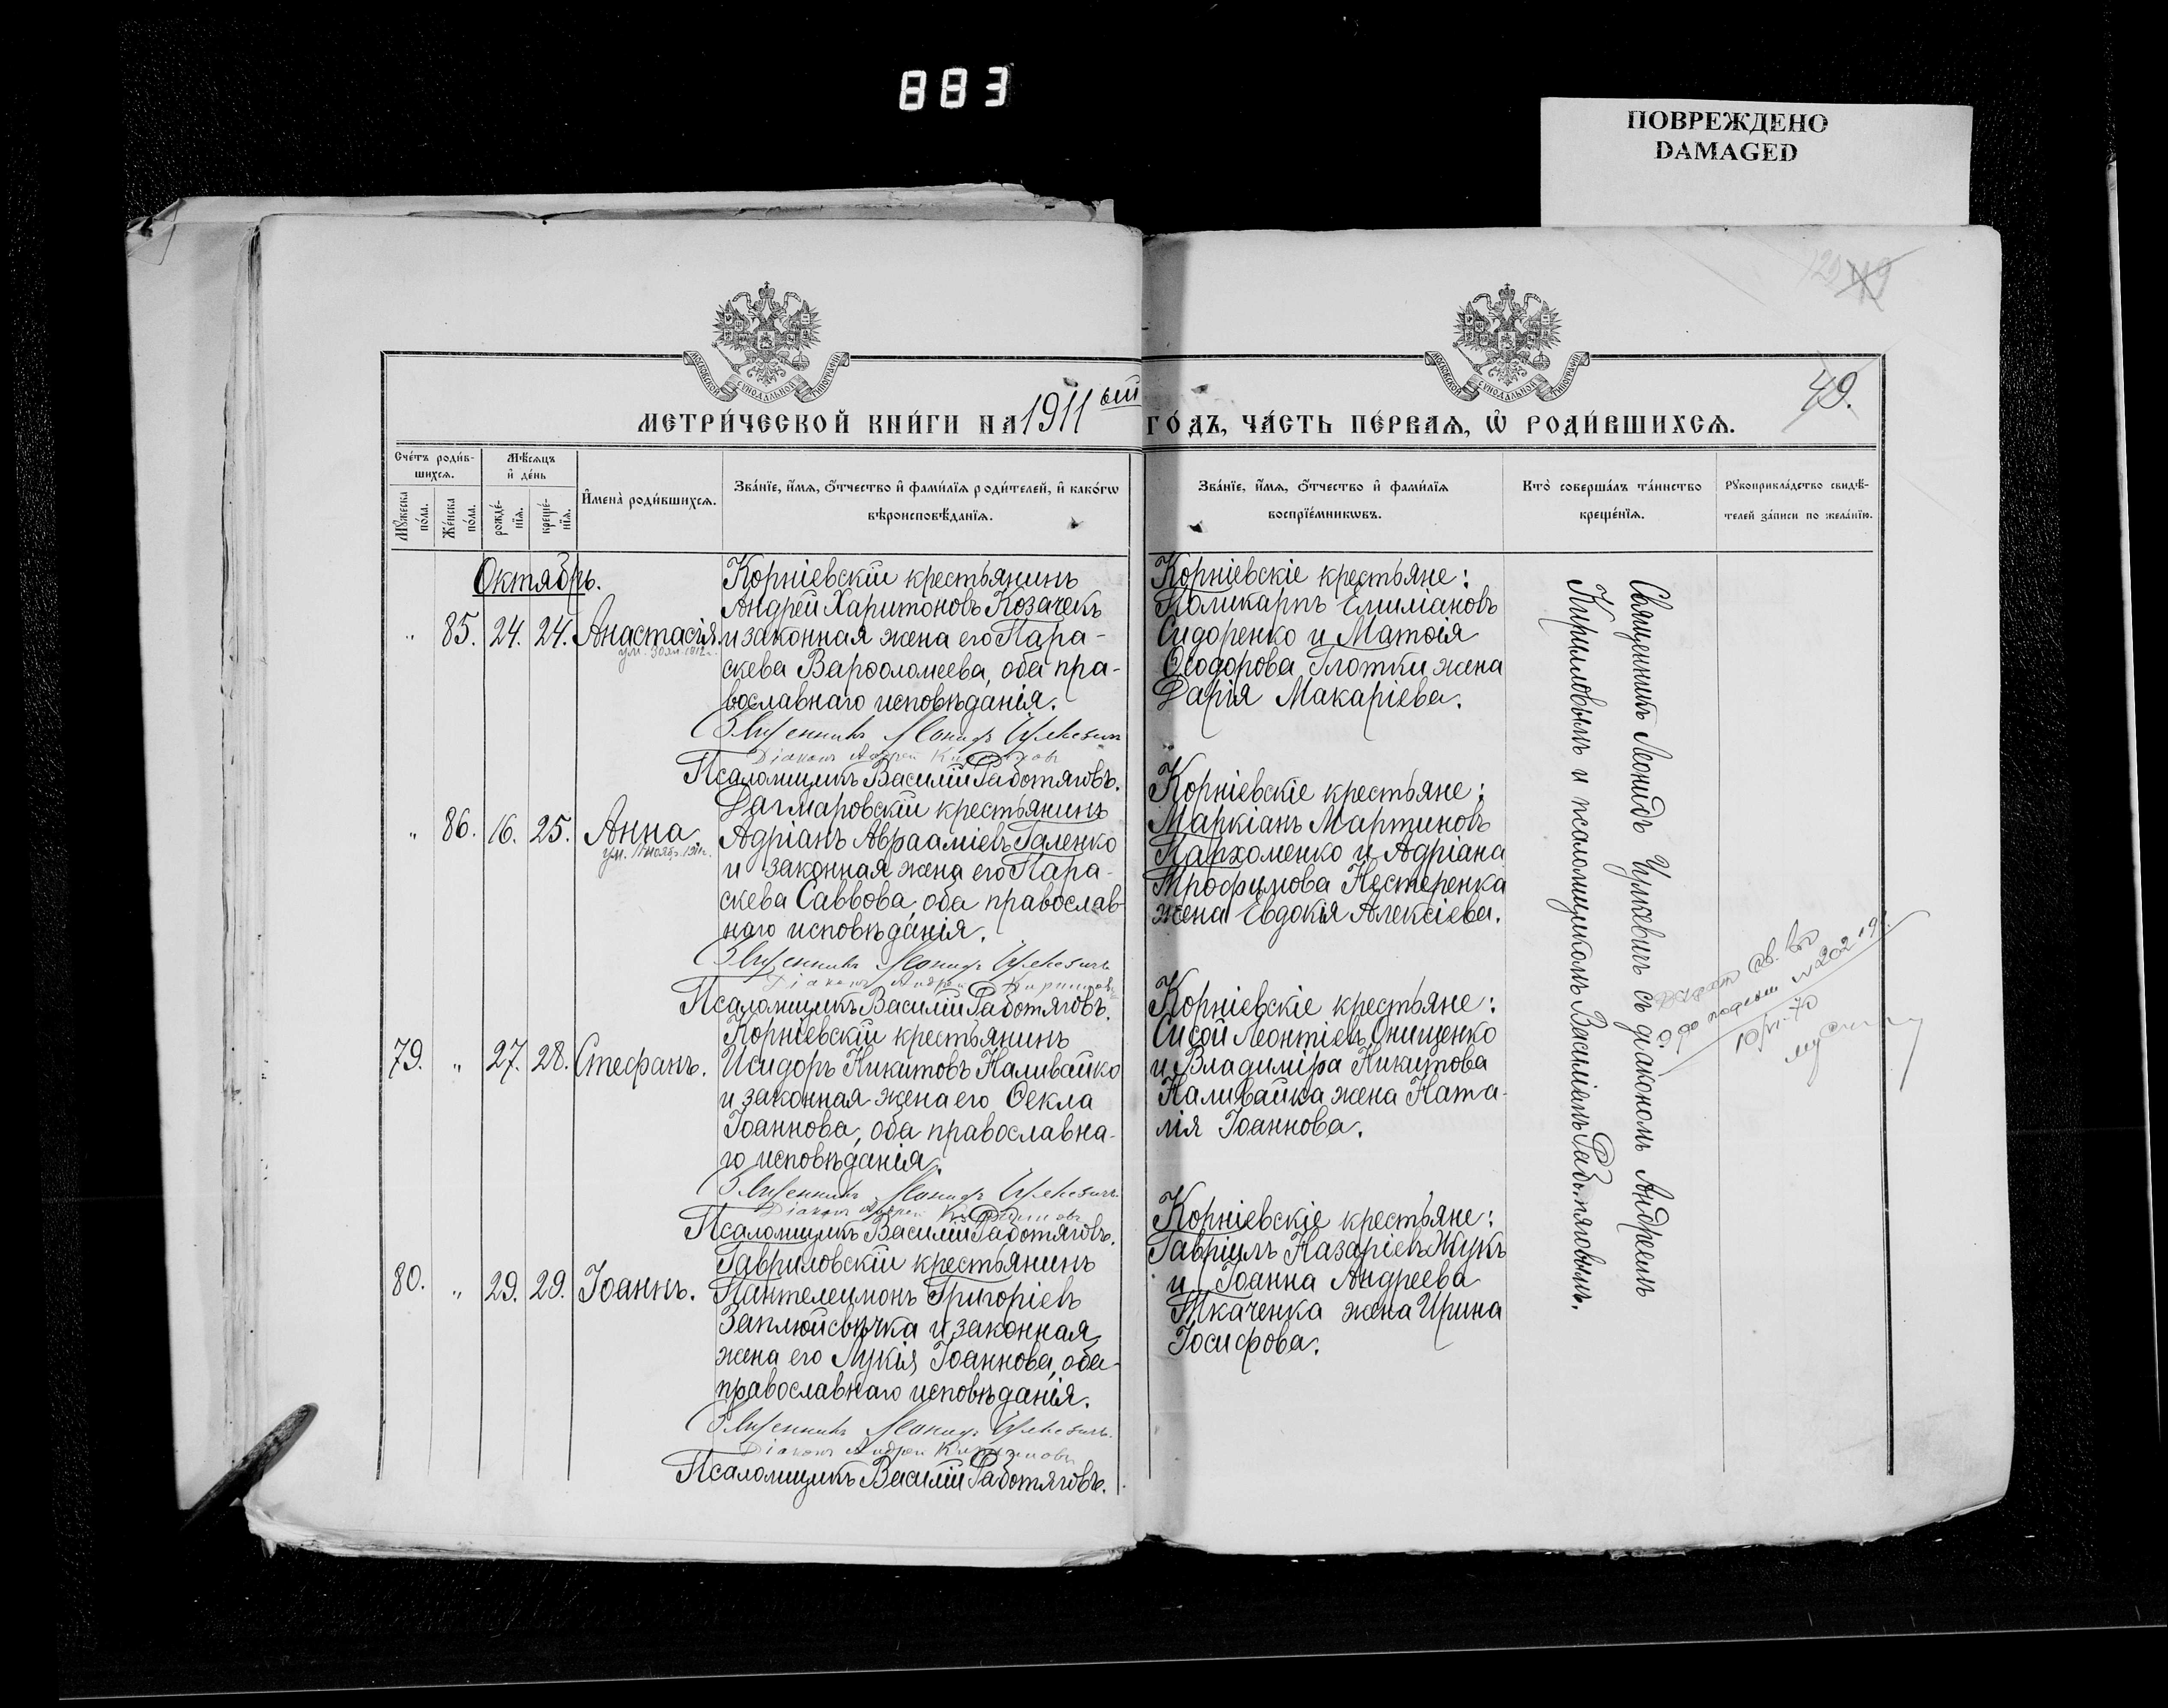 883
ПОВРЕЖДЕНО
DAMAGED
49
49.
МЕТРИ́ЧЕСКОЙ КНИ́ГИ НА 1911 ый ГО́ДЪ, ЧА́СТЬ ПЕ́РВАѦ, Ѡ҆ РОДИ́ВШИХСѦ.
Сче́тъ роди́в-
шихсѧ.
Мѣ́сѧцъ
и҆ де́нь
Мꙋ́жеска
по́ла.
Же́нска
по́ла.
рожде́-
нїѧ.
креще́-
нїѧ.
И҆мена̀ роди́вшихсѧ.
Зва́нїе, и҆́мѧ, ѻ҆́тчество и҆ фами́лїѧ роди́телей, и҆ како́гѡ
вѣроисповѣ́данїѧ.
Зва́нїе, и҆́мѧ, ѻ҆́тчество и҆ фами́лїѧ
воспрїе́мникѡвъ.
Кто̀ соверша́лъ та́инство
креще́нїѧ.
Рꙋкоприкла́дство свидѣ́-
телей за́писи по жела́нїю.
Октябрь.
" 85. 24. 24. Анастасія.
ум. 30 ян. 1912 г.
Корніевскій крестьянинъ
Андрей Харитоновъ Козачекъ
и законная жена его Пара-
скева Варѳоломеева, оба пра-
вославнаго исповѣданія.
Священникъ Леонидъ
Діаконъ Андрей Кирилловъ
Псаломщикъ Василій Работяговъ.
Корніевскіе крестьяне:
Поликарпъ Емиліановъ
Сидоренко и Матѳія
Ѳеодорова Глотки жена
Дарія Макаріева.
" 86. 16. 25. Анна.
Дагмаровскій крестьянинъ
Адріанъ Авраміевъ Галенко
и законная жена его Пара-
скева Саввова, оба православ-
наго исповѣданія.
Священникъ Леонидъ
Діаконъ Андрей Кирилловъ
Псаломщикъ Василій Работяговъ.
Корніевскіе крестьяне:
Маркіанъ Мартиновъ
Пархоменко и Адріана
Трофимова Нестеренка
жена Евдокія Алексіева.
79. " 27. 28. Стефанъ.
Корніевскій крестьянинъ
Исидоръ Никитовъ Наливайко
и законная жена его Ѳекла
Іоаннова, оба православна-
го исповѣданія.
Священникъ Леонидъ
Діаконъ Андрей Кирилловъ
Псаломщикъ Василій Работяговъ.
Корніевскіе крестьяне:
Сисой Леонтіевъ Онищенко
и Владиміра Никитова
Наливайка жена Ната-
лія Іоаннова.
80. " 29. 29. Іоаннъ.
Гавриловскій крестьянинъ
Пантелеимонъ Григоріевъ
Заплюйсвѣчка и законная
жена его Лукія Іоаннова, оба
православнаго исповѣданія.
Священникъ Леонидъ
Діаконъ Андрей Кирилловъ
Псаломщикъ Василій Работяговъ.
Корніевскіе крестьяне:
Гавріилъ Назаріевъ Жукъ
и Іоанна Андреева
Ткаченка жена Ирина
Іосифова.
Священникъ Леонидъ съ діакономъ Андреемъ
Кирилловымъ и псаломщикомъ Василіемъ Работяговымъ.